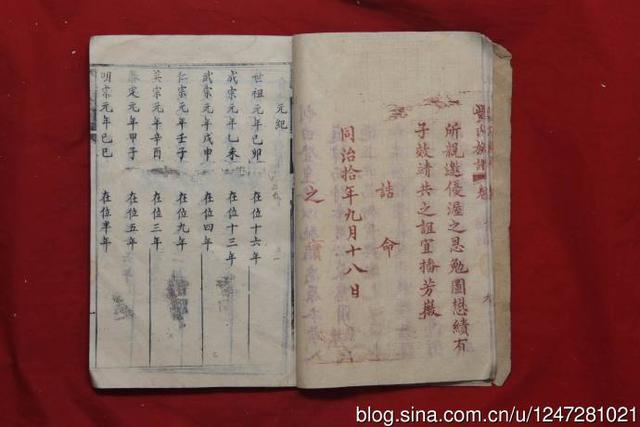 所親邀優渥之恩勉圖懋績有
子效靖共之誼宜播芳徽
誥命
同治拾年九月十八日
之
元紀
世祖元年己卯 在位十六年
成宗元年乙未 在位十三年
武宗元年戊申 在位四年
仁宗元年壬子 在位九年
英宗元年辛酉 在位三年
泰定元年甲子 在位五年
明宗元年己巳 在位半年
blog.sina.com.cn/u/1247281021